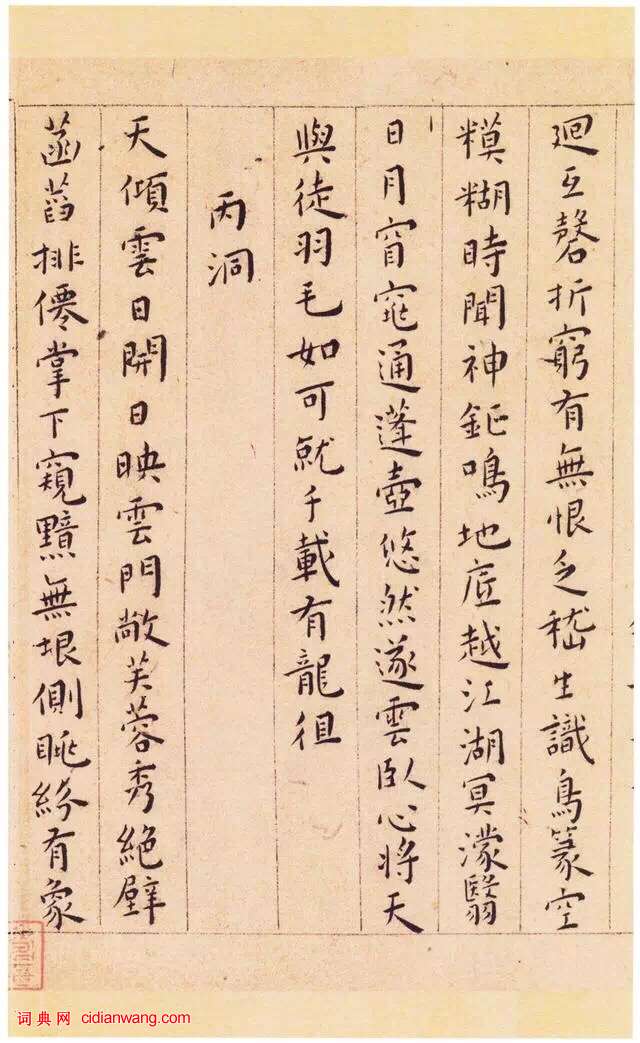 廻互磬折窮有無恨乏嵇生識鳥篆空
糢糊時聞神鉦鳴地底越江湖冥濛翳
日月窅窕通蓬壺悠然遂雲臥心將天
與徒羽毛如可就千載有龍徂
丙洞
天傾雲日開日映雲門敞芙蓉秀絶壁
菡萏排僊掌下窺黯無垠側眺紛有象
词典网 cidianwang.com